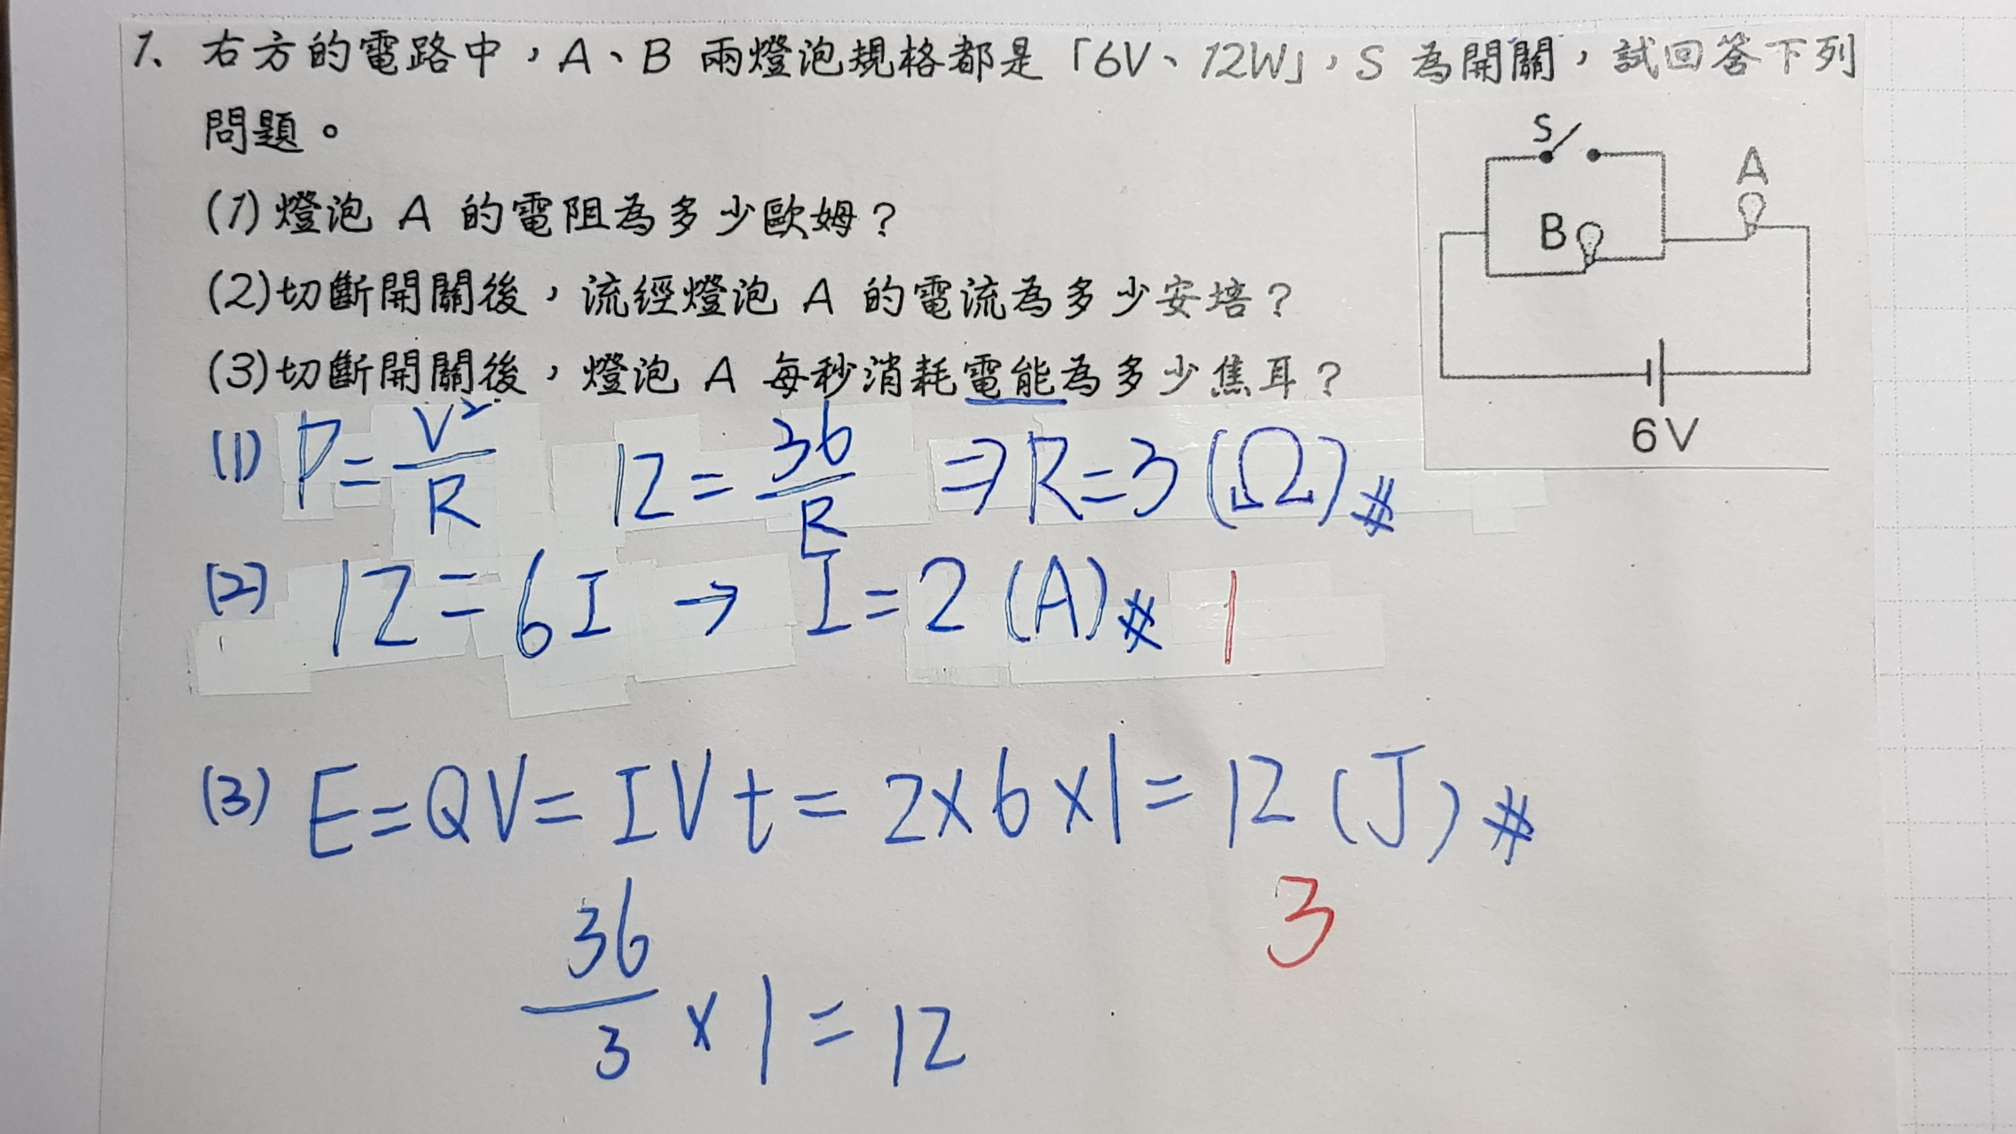 1、右方的電路中，A、B 兩燈泡規格都是「6V、12W」，S 為開關，試回答下列
問題。
(1)燈泡 A 的電阻為多少歐姆？
(2)切斷開關後，流經燈泡 A 的電流為多少安培？
(3)切斷開關後，燈泡 A 每秒消耗電能為多少焦耳？
S
A
B
6V
(1) P=V²/R 12=36/R ⇒R=3(Ω)#
(2) 12=6I → I=2(A)# 1
(3) E=QV=IVt=2×6×1=12(J)#
3
36/3×1=12